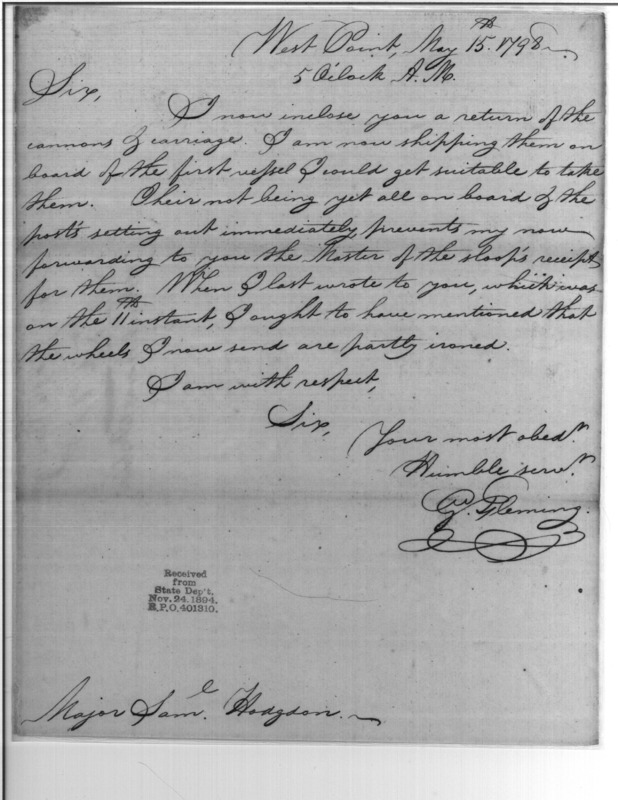 West Point, May 15th. 1798
5 O'Clock A.M.
Sir,
I now inclose you a return of the
cannons & carriage. I am now shipping them on
board of the first vessel I could get suitable to take
them. Their not being yet all on board & the
post's setting out immediately, prevents my now
forwarding to you the Master of the sloop's receipt
for them. When I last wrote to you, which was
on the 11th instant, I ought to have mentioned that
the wheels I now send are partly ironed.
I am with respect,
Sir,
Your most obedt.
Humble servt.
Go. Fleming.
Received
from
State Dep't,
Nov. 24. 1894,
R.P.O. 401310.
Major Saml. Hodgdon.